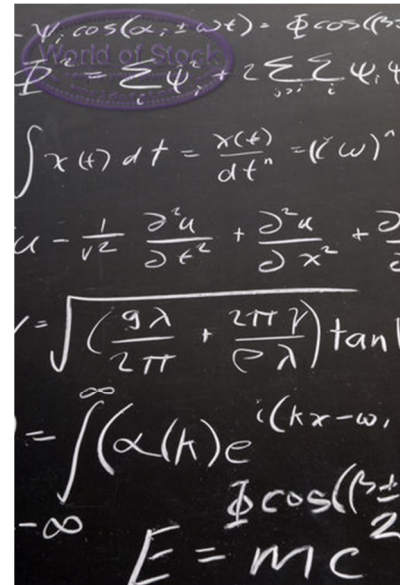 Ψᵢ cos(αᵢ ± ωt) = Φ cos(β±
World of Stock
Φ² = Σᵢ Ψᵢ² + 2 Σⱼ>ᵢ Σᵢ Ψᵢ Ψ
∫ x(t) dt = x(t)/dtⁿ = (iω)ⁿ
u - 1/v² ∂²u/∂t² + ∂²u/∂x² + ∂
= √(gλ/2π + 2πγ/ρλ) tan
= ∫_{-∞}^{∞} (α(k) e^{i(kx-ω
Φ cos(β±
2
E = mc